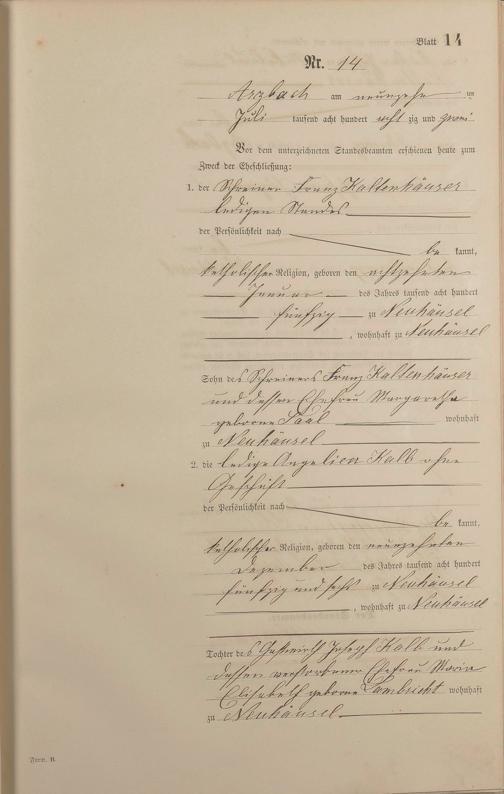 Blatt 14
Nr. 14
Arzbach am neunzehn
Juli tausend acht hundert acht zig und zwei
Vor dem unterzeichneten Standesbeamten erschienen heute zum
Zweck der Eheschließung:
1. der Schreiner Franz Kaltenhäuser
ledigen Standes
der Persönlichkeit nach
be kannt,
katholischer Religion, geboren den achtzehnten
Januar des Jahres tausend acht hundert
fünfzig zu Neuhäusel
, wohnhaft zu Neuhäusel
Sohn des Schreiners Franz Kaltenhäuser
und dessen Ehefrau Margaretha
geborene Saal wohnhaft
zu Neuhäusel
2. die ledige Angelica Kalb ohne
Geschäft
der Persönlichkeit nach
be kannt,
katholischer Religion, geboren den neunzehnten
Dezember des Jahres tausend acht hundert
fünfzig und sechs zu Neuhäusel
, wohnhaft zu Neuhäusel
Tochter des Gastwirth Joseph Kalb und
dessen verstorbener Ehefrau Maria
Elisabeth geborene Lambricht wohnhaft
zu Neuhäusel
Form. B.